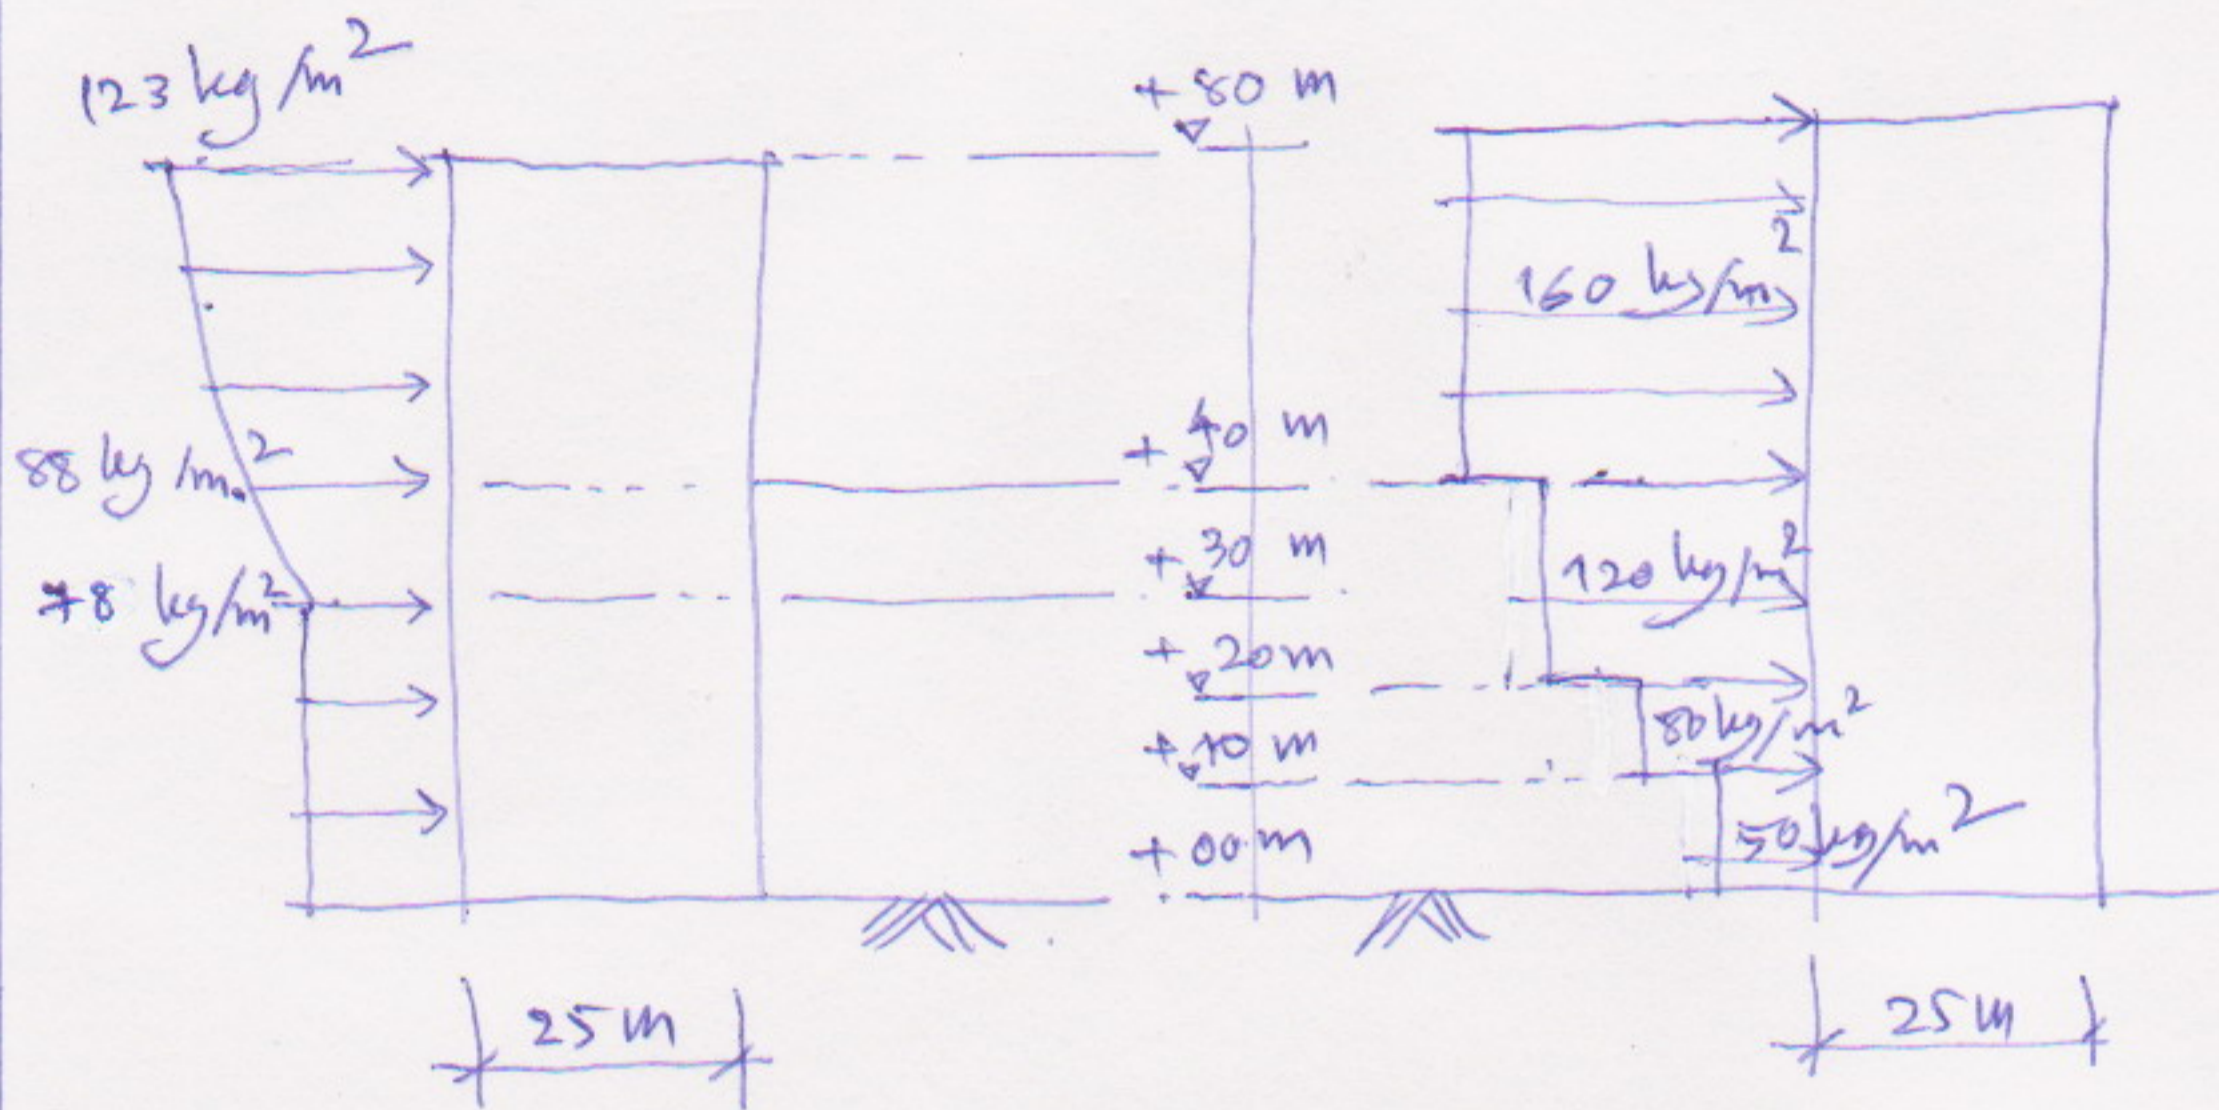 123 kg/m²
88 kg/m²
78 kg/m²
25 m
+80 m
+40 m
+30 m
+20 m
+10 m
+00 m
160 kg/m²
120 kg/m²
80 kg/m²
50 kg/m²
25 m